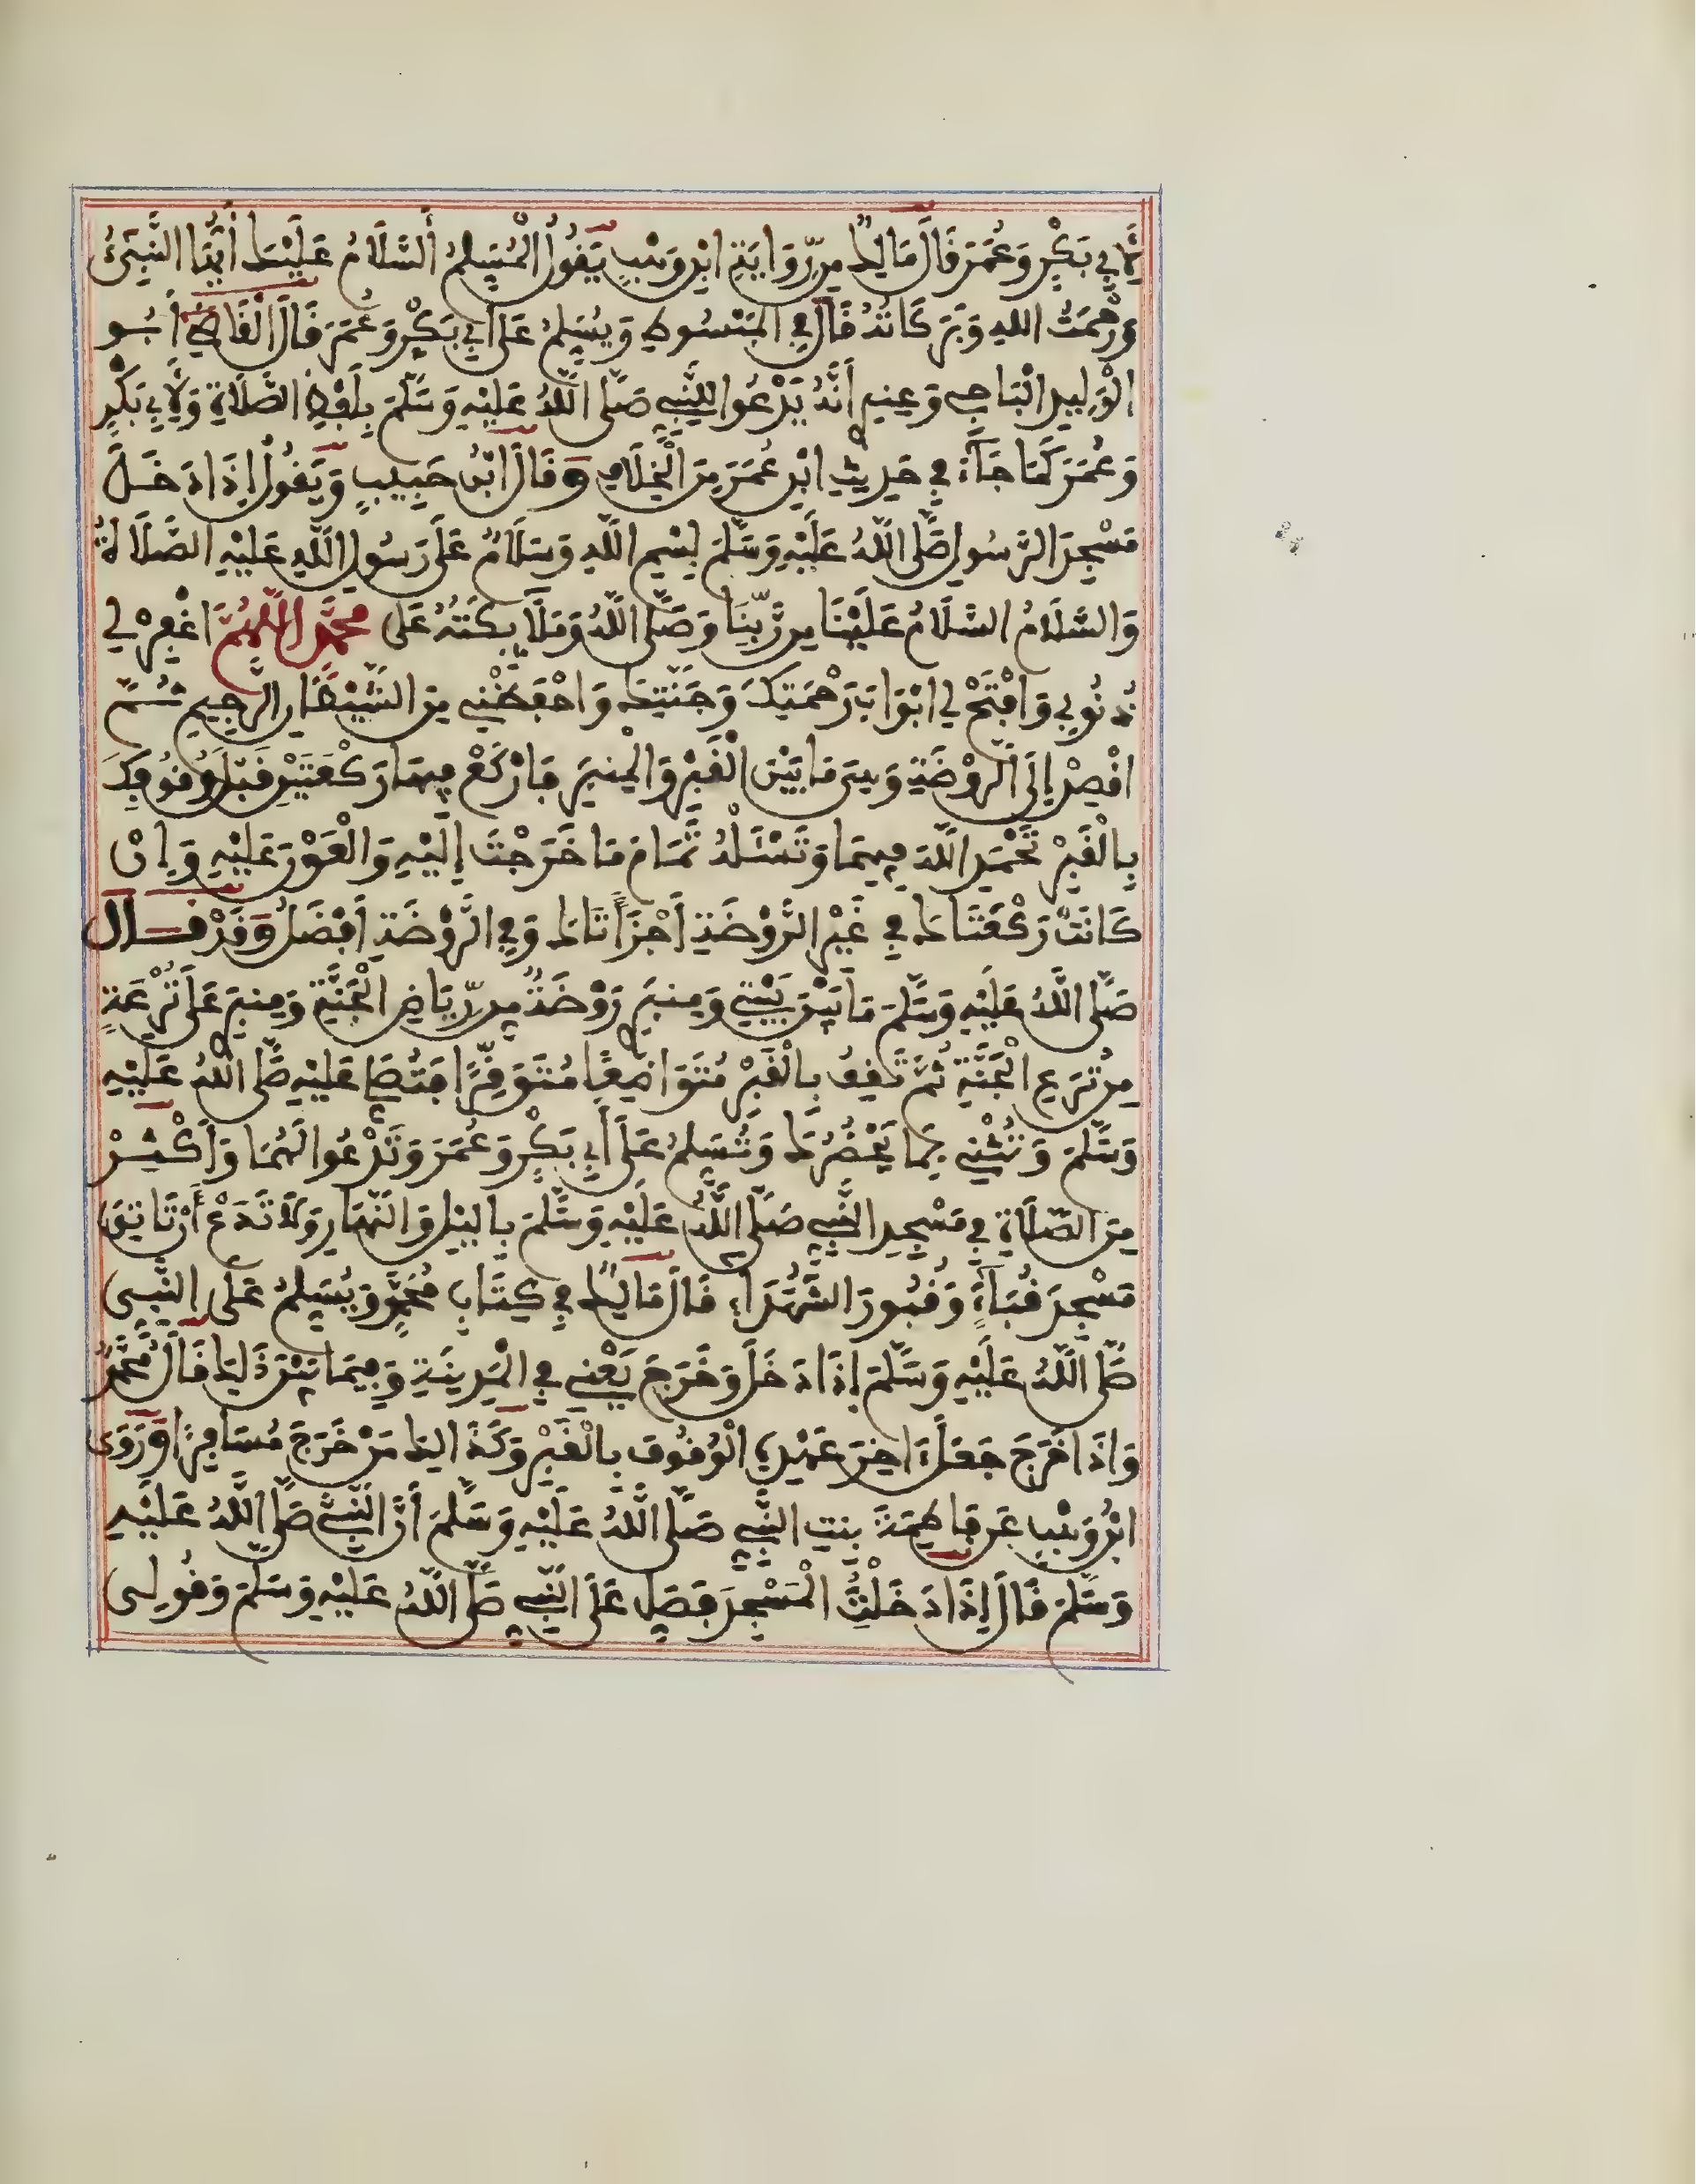 لِأَبِي بَكْرٍ وَعُمَرَ قَالَ مَالِكٌ مِن رِّوَايَةِ ابْنِ وَهْبٍ يَقُولُ الْمُسَلِّمُ أَلسَّلَامُ عَلَيْكَ أَيُّهَا النَّبِيُّ
وَرَحْمَتُ اللهِ وَبَرَكَاتُهُ قَالَ فِي الْمَبْسُوطِ وَيُسَلِّمُ عَلَى أَبِي بَكْرٍ وَعُمَرَ قَالَ الْقَاضِي أَبُو
الْوَلِيدِ الْبَاجِي وَعِندِي أَنَّهُ يَدْعُوا لِلنَّبِي صَلَّى اللَّهُ عَلَيْهِ وَسَلَّمَ بِلَفْظِ الصَّلَاةِ وَلِأَبِي بَكْرٍ
وَعُمَرَ كَمَا جَآءَ فِي حَدِيثِ ابْنِ عُمَرَ مِنَ الْخِلَافِ وَقَالَ ابْنُ حَبِيبٍ وَيَقُولُ إِذَا دَخَلَ
مَسْجِدَ الرَّسُولِ صَلَّى اللَّهُ عَلَيْهِ وَسَلَّمَ بِسْمِ اللَّهِ وَسَلَامٌ عَلَى رَسُولِ اللَّهِ عَلَيْهِ الصَّلَاةُ
وَالسَّلَامُ السَّلَامُ عَلَيْنَا مِن رَّبِّنَا وَصَلَّى اللَّهُ وَمَلَائِكَتُهُ عَلَى مُحَمَّدٍ اللَّهُمَّ اغْفِرْ لِي
ذُنُوبِي وَافْتَحْ لِي ابْوَابَ رَحْمَتِكَ وَجَنَّتِكَ وَاحْفَظْنِي مِنَ الشَّيْطَانِ الرَّجِيمِ ثُمَّ
اقْصِدْ إِلَى الرَّوْضَةِ وَهِيَ مَا بَيْنَ الْقَبْرِ وَالْمِنبَرِ فَارْكَعْ فِيهَا رَكْعَتَيْنِ قَبْلَ وُقُوفِكَ
بِالْقَبْرِ تَحْمَدِ اللَّهَ فِيهِمَا وَتَسْئَلُهُ تَمَامَ مَا خَرَجْتَ إِلَيْهِ وَالْعَوْنَ عَلَيْهِ وَإِنْ
كَانَتْ رَكْعَتَاكَ فِي غَيْرِ الرَّوْضَةِ أَجْزَأَتَاكَ وَفِي الرَّوْضَةِ أَفْضَلُ وَقَدْ قَالَ
صَلَّى اللَّهُ عَلَيْهِ وَسَلَّمَ مَا بَيْنَ بَيْتِي وَمِنبَرِي رَوْضَةٌ مِن رِّيَاضِ الْجَنَّةِ وَمِنبَرِي عَلَى تُرْعَةٍ
مِن تُرَعِ الْجَنَّةِ ثُمَّ تَقِفُ بِالْقَبْرِ مُتَوَاضِعًا مُتَوَقِّرًا فَتُصَلِّي عَلَيْهِ صَلَّى اللَّهُ عَلَيْهِ
وَسَلَّمَ وَتُثْنِي بِمَا يَحْضُرُكَ وَتُسَلِّمُ عَلَى أَبِي بَكْرٍ وَعُمَرَ وَتَدْعُوا لَهُمَا وَأَكْثِرْ
مِنَ الصَّلَاةِ فِي مَسْجِدِ النَّبِي صَلَّى اللَّهُ عَلَيْهِ وَسَلَّمَ بِالَّيْلِ وَالنَّهَارِ وَلَا تَدَعْ أَنْ تَاتِيَ
مَسْجِدَ قُبَآءٍ وَقُبُورَ الشُّهَدَاءِ قَالَ مَالِكٌ فِي كِتَابِ مُحَمَّدٍ وَيُسَلِّمُ عَلَى النَّبِي
صَلَّى اللَّهُ عَلَيْهِ وَسَلَّمَ إِذَا دَخَلَ وَخَرَجَ يَعْنِي فِي الْمَدِينَةِ وَفِيمَا بَيْنَ ذَلِكَ قَالَ مُحَمَّدٌ
وَإِذَا خَرَجَ جَعَلَ ءَاخِرَ عَهْدِهِ الْوُقُوفَ بِالْقَبْرِ وَكَذَالِكَ مَنْ خَرَجَ مُسَافِرًا وَرَوَى
ابْنُ وَهْبٍ عَن فَاطِمَةَ بِنتِ النَّبِي صَلَّى اللَّهُ عَلَيْهِ وَسَلَّمَ أَنَّ النَّبِيَّ صَلَّى اللَّهُ عَلَيْهِ
وَسَلَّمَ قَالَ إِذَا دَخَلْتِ الْمَسْجِدَ فَصَلِّ عَلَى النَّبِي صَلَّى اللَّهُ عَلَيْهِ وَسَلَّمَ وَقُولِي